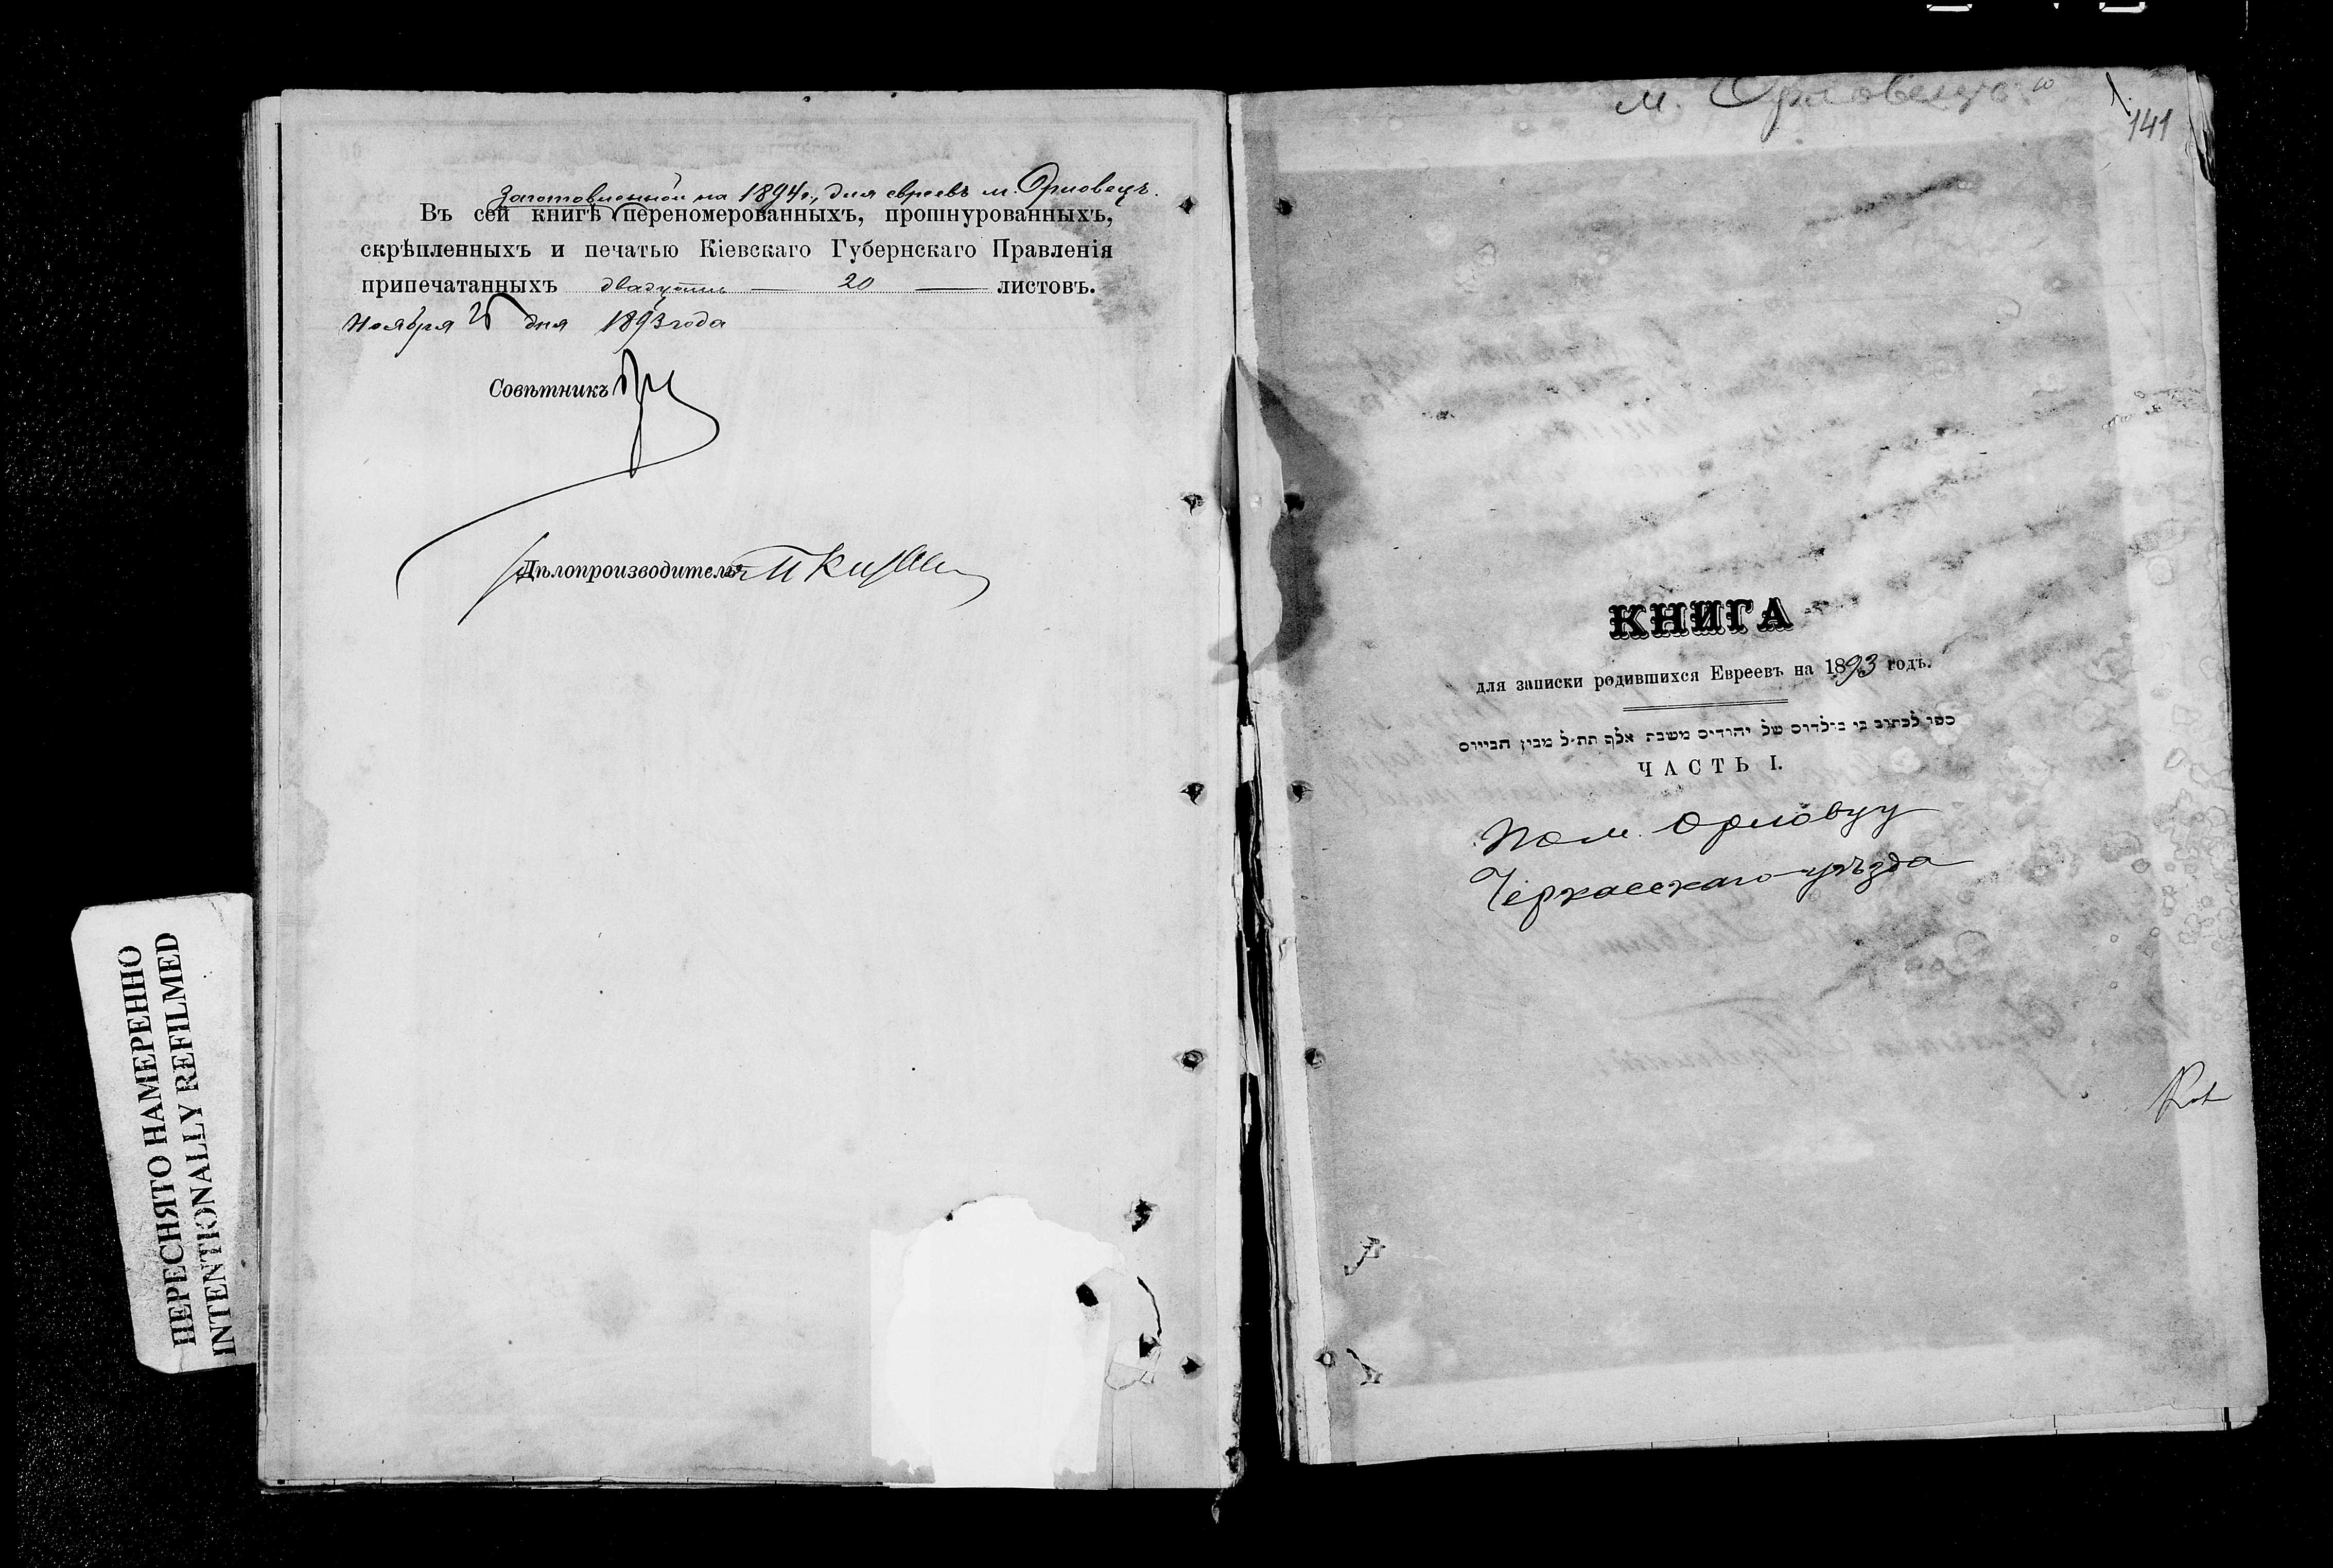 заготовленной на 1894 г., для евреевъ м. Орловецъ.
Въ сей книгѣ переномерованныхъ, прошнурованныхъ,
скрѣпленныхъ и печатью Кіевскаго Губернскаго Правленія
припечатанныхъ двадцать — 20 — листовъ.
Ноября дня 1893 года
Совѣтникъ
Дѣлопроизводитель
ПЕРЕСНЯТО НАМЕРЕННО
INTENTIONALLY REFILMED
м. Орловецъ
141
КНИГА
для записки родившихся Евреевъ на 1893 годъ.
של יהודים משנת אלף
ЧАСТЬ I.
По м. Орловцу
Черкасскаго уѣзда